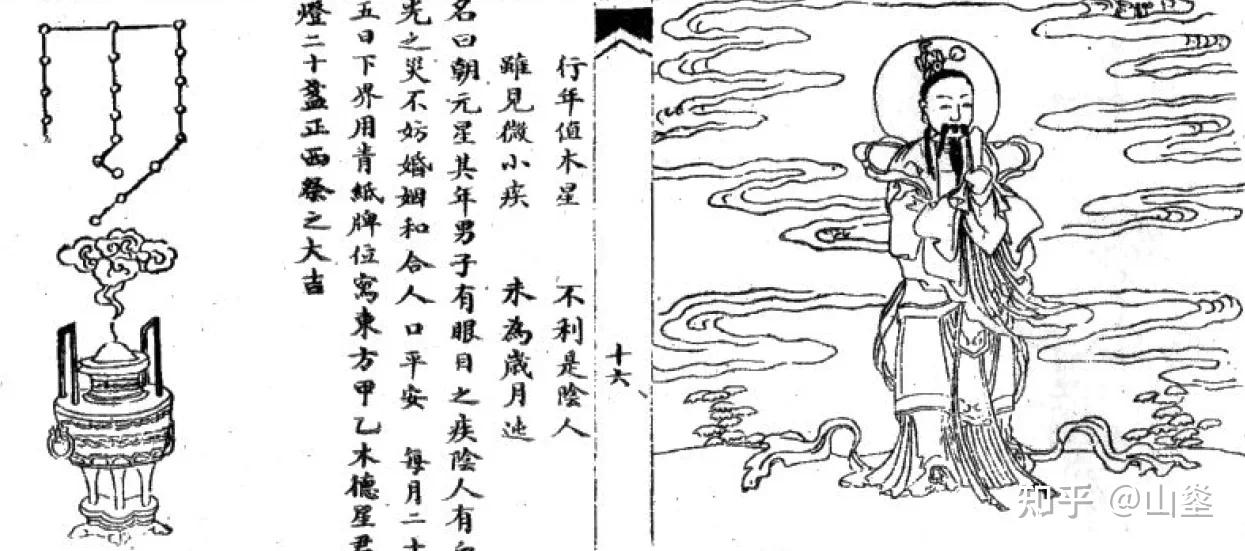 十六
行年值木星 不利是陰人
雖見微小疾 未為歲月迍
名曰朝元星其年男子有眼目之疾陰人有
光之災不妨婚姻和合人口平安 每月二十
五日下界用青紙牌位寫東方甲乙木德星君
燈二十盞正西祭之大吉
知乎 @山垒